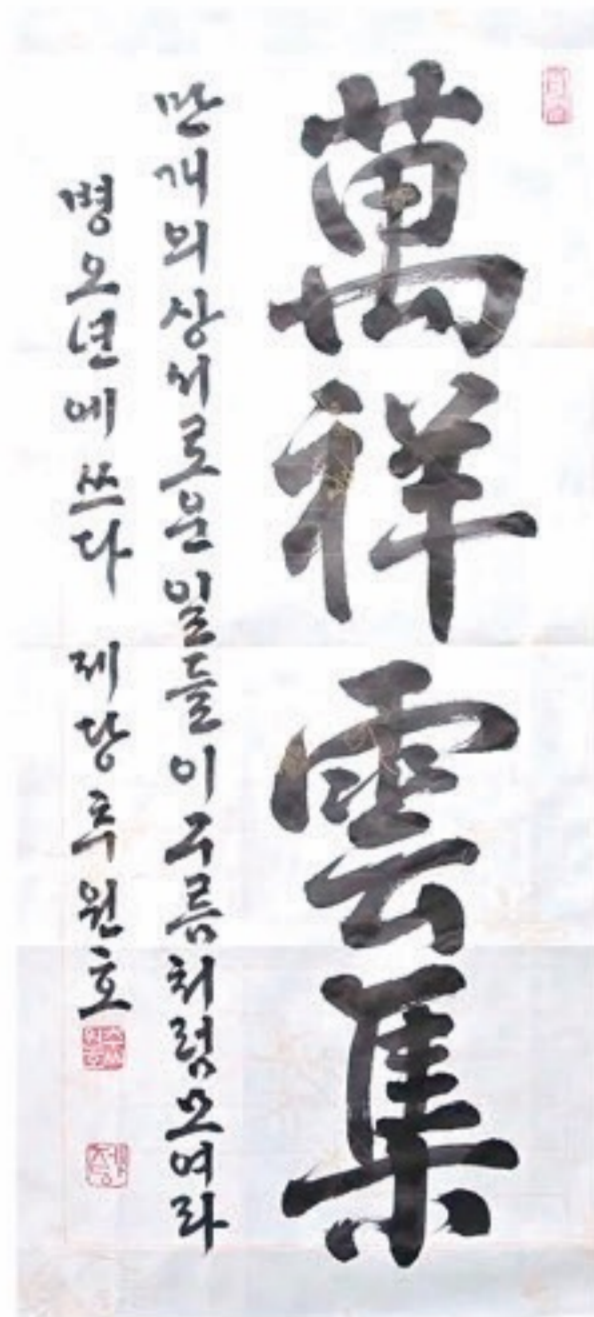 萬祥雲集
만개의상서로운일들이구름처럼모여라
병오년에 쓰다 제당 추원호